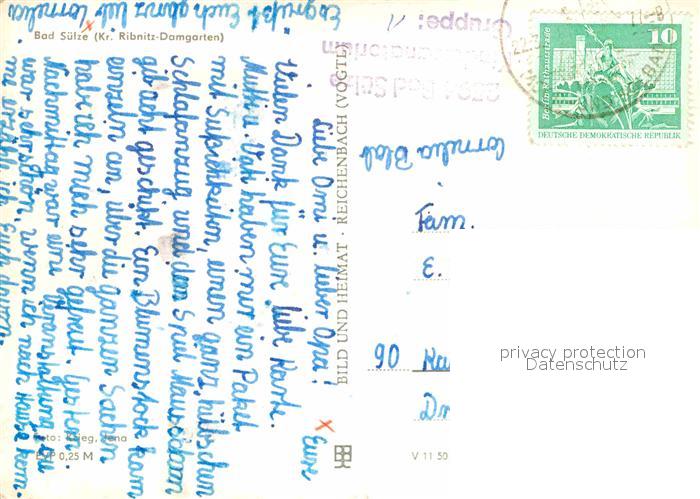 Bad Sülze (Kr. Ribnitz-Damgarten)
Liebe Omi u. lieber Opa!
Vielen Dank für Eure liebe Karte.
Mutti u. Vati haben mir ein Paket
mit Süßigkeiten, einen ganz hübschen
Schlafanzug und dem Spiel
geschickt. Ein Blumenstock kam
an, über die ganzen Sachen
habe ich mich sehr gefreut. Gestern
Nachmittag war
war sehr schön, wenn ich nach Hause kom-
me erzähle ich Euch davon.
Es grüßt Euch ganz lieb Cornelia
Eure
Foto: Krieg, Jena
EVP 0,25 M
BILD UND HEIMAT · REICHENBACH (VOGTL)
V 11 50
2594 Bad Sülze
Gruppe: 11
Cornelia
Fam.
E.
90
Berlin, Rathausstrasse
10
DEUTSCHE DEMOKRATISCHE REPUBLIK
privacy protection
Datenschutz